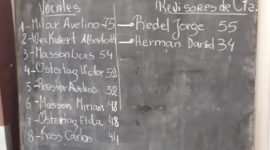 Vocales
1- Millar Avelino 75
2- Weckulert Alberto 61
3- Masson Luis 54
4- Ostertag Victor 52
5- Forster Avelino 52
6- Masson Miriam 48
7- Ostertag Elda 48
8- Kass Carlos 44
Revisores de Cta.
Riedel Jorge 55
Herman Daniel 34